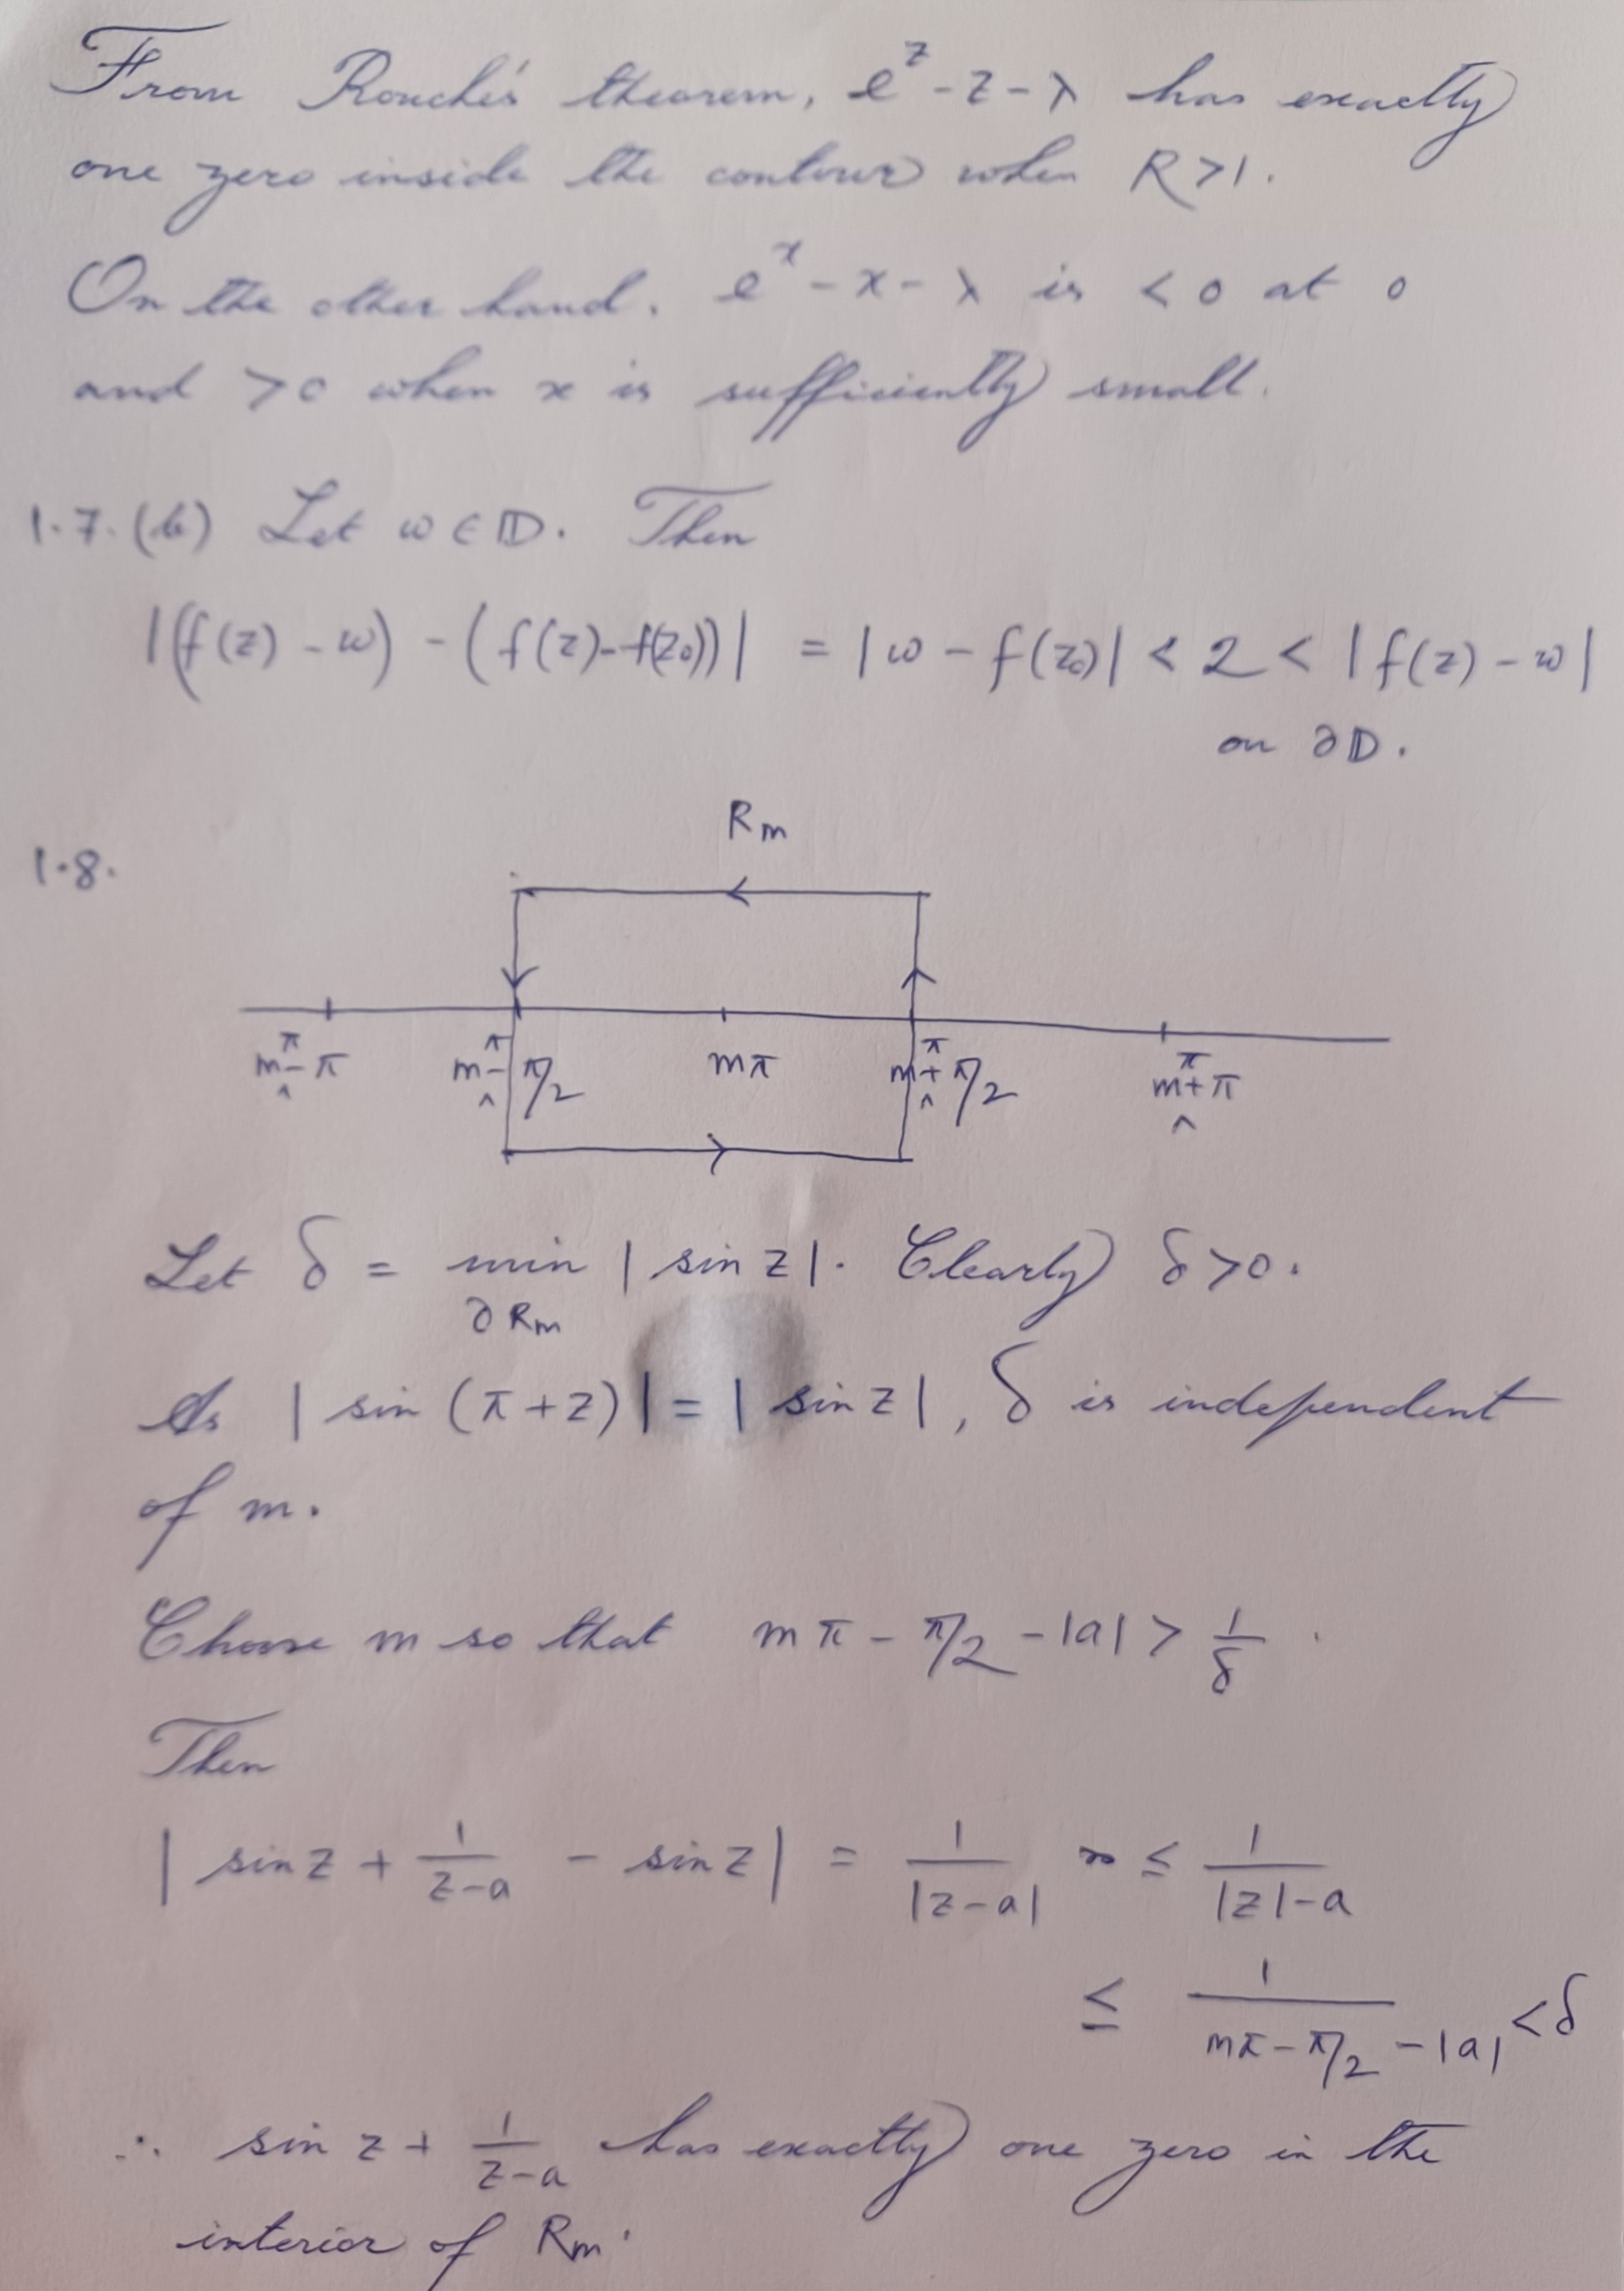 From Rouché's theorem, e^z - z - λ has exactly
one zero inside the contour when R > 1.
On the other hand, e^x - x - λ is < 0 at 0
and > 0 when x is sufficiently small.
1.7. (b) Let w ∈ 𝔻. Then
|(f(z) - w) - (f(z) - f(z₀))| = |w - f(z₀)| < 2 < |f(z) - w|
on ∂𝔻.
R_m
1.8.
mπ - π mπ - π/2 mπ mπ + π/2 mπ + π
Let δ = min |sin z|. Clearly δ > 0.
∂R_m
As |sin (π + z)| = |sin z|, δ is independent
of m.
Choose m so that mπ - π/2 - |a| > 1/δ.
Then
|sin z + 1/(z-a) - sin z| = 1/|z-a| ≤ 1/(|z|-a)
≤ 1/(mπ - π/2 - |a|) < δ
∴ sin z + 1/(z-a) has exactly one zero in the
interior of R_m.